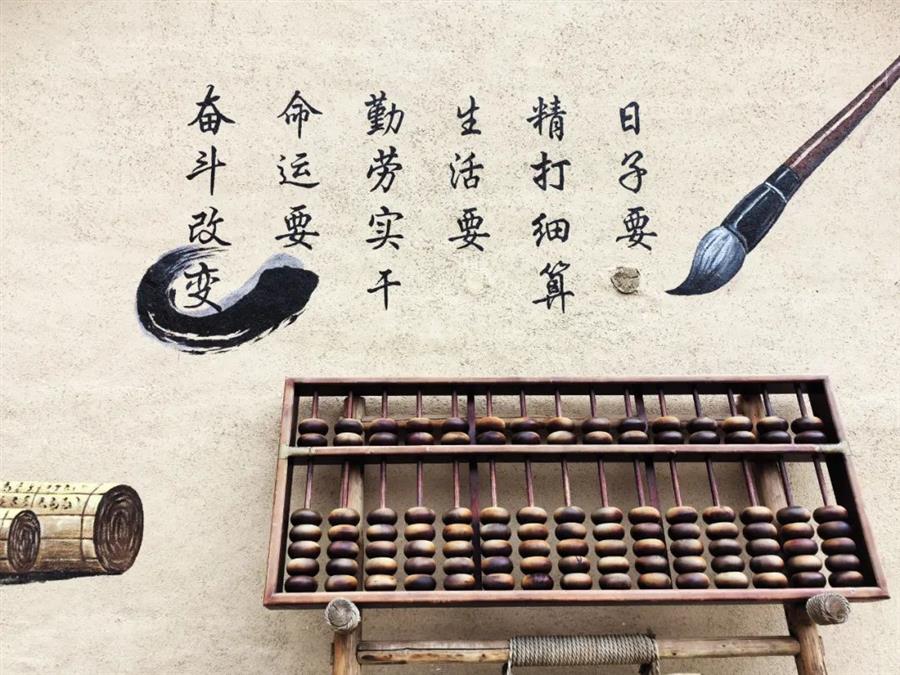 日子要
精打细算
生活要
勤劳实干
命运要
奋斗改变